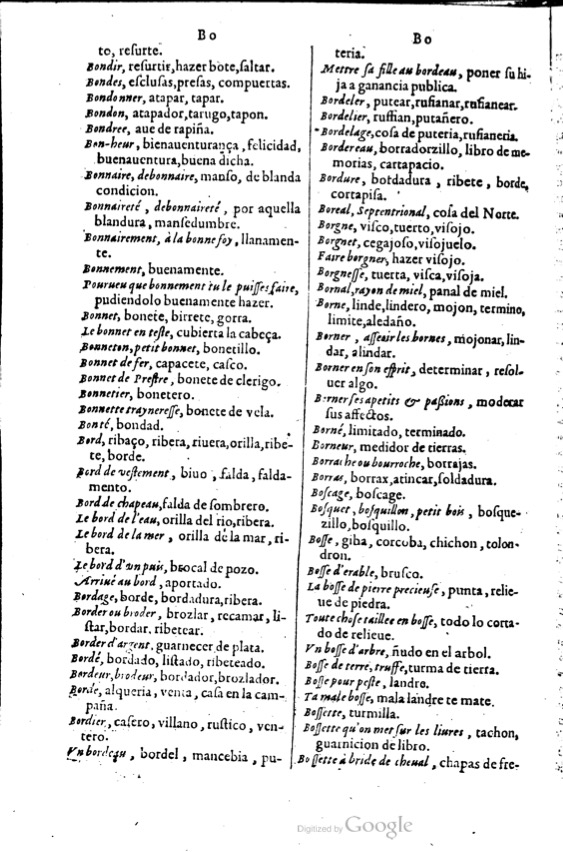 Bo
to, reſurte.
Bondir, reſurtir, hazer bote, ſaltar.
Bondes, eſcluſas, preſas, compuertas.
Bondonner, atapar, tapar.
Bondon, atapador, tarugo, tapon.
Bondree, aue de rapiña.
Bon-heur, bienauenturança, felicidad,
buenauentura, buena dicha.
Bonnaire, debonnaire, manſo, de blanda
condicion.
Bonnaireté, debonnaireté, por aquella
blandura, manſedumbre.
Bonnairement, à la bonne foy, llanamen-
te.
Bonnement, buenamente.
Pourueu que bonnement tu le puiſſes faire,
pudiendolo buenamente hazer.
Bonnet, bonete, birrete, gorra.
Le bonnet en teſte, cubierta la cabeça.
Bonneton, petit bonnet, bonetillo.
Bonnet de fer, capacete, caſco.
Bonnet de Preſtre, bonete de clerigo.
Bonnetier, bonetero.
Bonnette traynereſſe, bonete de vela.
Bonté, bondad.
Bord, ribaço, ribera, riuera, orilla, ribe-
te, borde.
Bord de veſtement, biuo, falda, falda-
mento.
Bord de chapeau, falda de ſombrero.
Le bord de l'eau, orilla del rio, ribera.
Le bord de la mer, orilla de la mar, ri-
bera.
Le bord d'vn puis, brocal de pozo.
Arriué au bord, aportado.
Bordage, borde, bordadura, ribera.
Border ou broder, brozlar, recamar, li-
ſtar, bordar, ribetear.
Border d'argent, guarnecer de plata.
Bordé, bordado, liſtado, ribeteado.
Bordeur, brodeur, bordador, brozlador.
Borde, alqueria, venta, caſa en la cam-
paña.
Bordier, caſero, villano, ruſtico, ven-
tero.
Vn bordeau, bordel, mancebia, pu-
Bo
teria.
Mettre ſa fille au bordeau, poner ſu hi-
ja a ganancia publica.
Bordeler, putear, rufianar, rufianear.
Bordelier, ruffian, putañero.
Bordelage, coſa de puteria, rufianeria.
Bordereau, borradorzillo, libro de me-
morias, cartapacio.
Bordure, bordadura, ribete, borde,
cortapiſa.
Boreal, Septentrional, coſa del Norte.
Borgne, viſco, tuerto, viſojo.
Borgnet, cegajoſo, viſojuelo.
Faire borgner, hazer viſojo.
Borgneſſe, tuerta, viſca, viſoja.
Bornal, rayon de miel, panal de miel.
Borne, linde, lindero, mojon, termino,
limite, aledaño.
Borner, aſſeoir les bornes, mojonar, lin-
dar, alindar.
Borner en ſon eſprit, determinar, reſol-
uer algo.
Borner ſes apetits & paſsions, moderar
ſus affectos.
Borné, limitado, terminado.
Borneur, medidor de tierras.
Borrache ou bourroche, borrajas.
Borras, borrax, atincar, ſoldadura.
Boſcage, boſcage.
Boſquet, boſquillon, petit bois, boſque-
zillo, boſquillo.
Boſſe, giba, corcuba, chichon, tolon-
dron.
Boſſe d'erable, bruſco.
La boſſe de pierre precieuſe, punta, relie-
ue de piedra.
Toute choſe taillee en boſſe, todo lo corta-
do de relieue.
Vn boſſe d'arbre, ñudo en el arbol.
Boſſe de terre, truffe, turma de tierta.
Boſſe pour peſte, landre.
Ta male boſſe, mala landre te mate.
Boſſette, turmilla.
Boſſette qu'on met ſur les liures, tachon,
guarnicion de libro.
Boſſette à bride de cheual, chapas de fre-
Digitized by Google